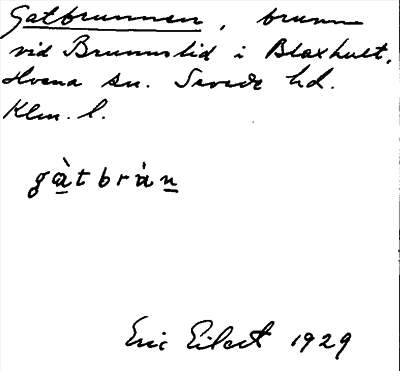 Gatbrunnen, brunn
vid Brunnslid i Bloxhult,
Hvena sn. Sevede hd.
Klm. l.
gàtbràn
Eric Eilert 1929